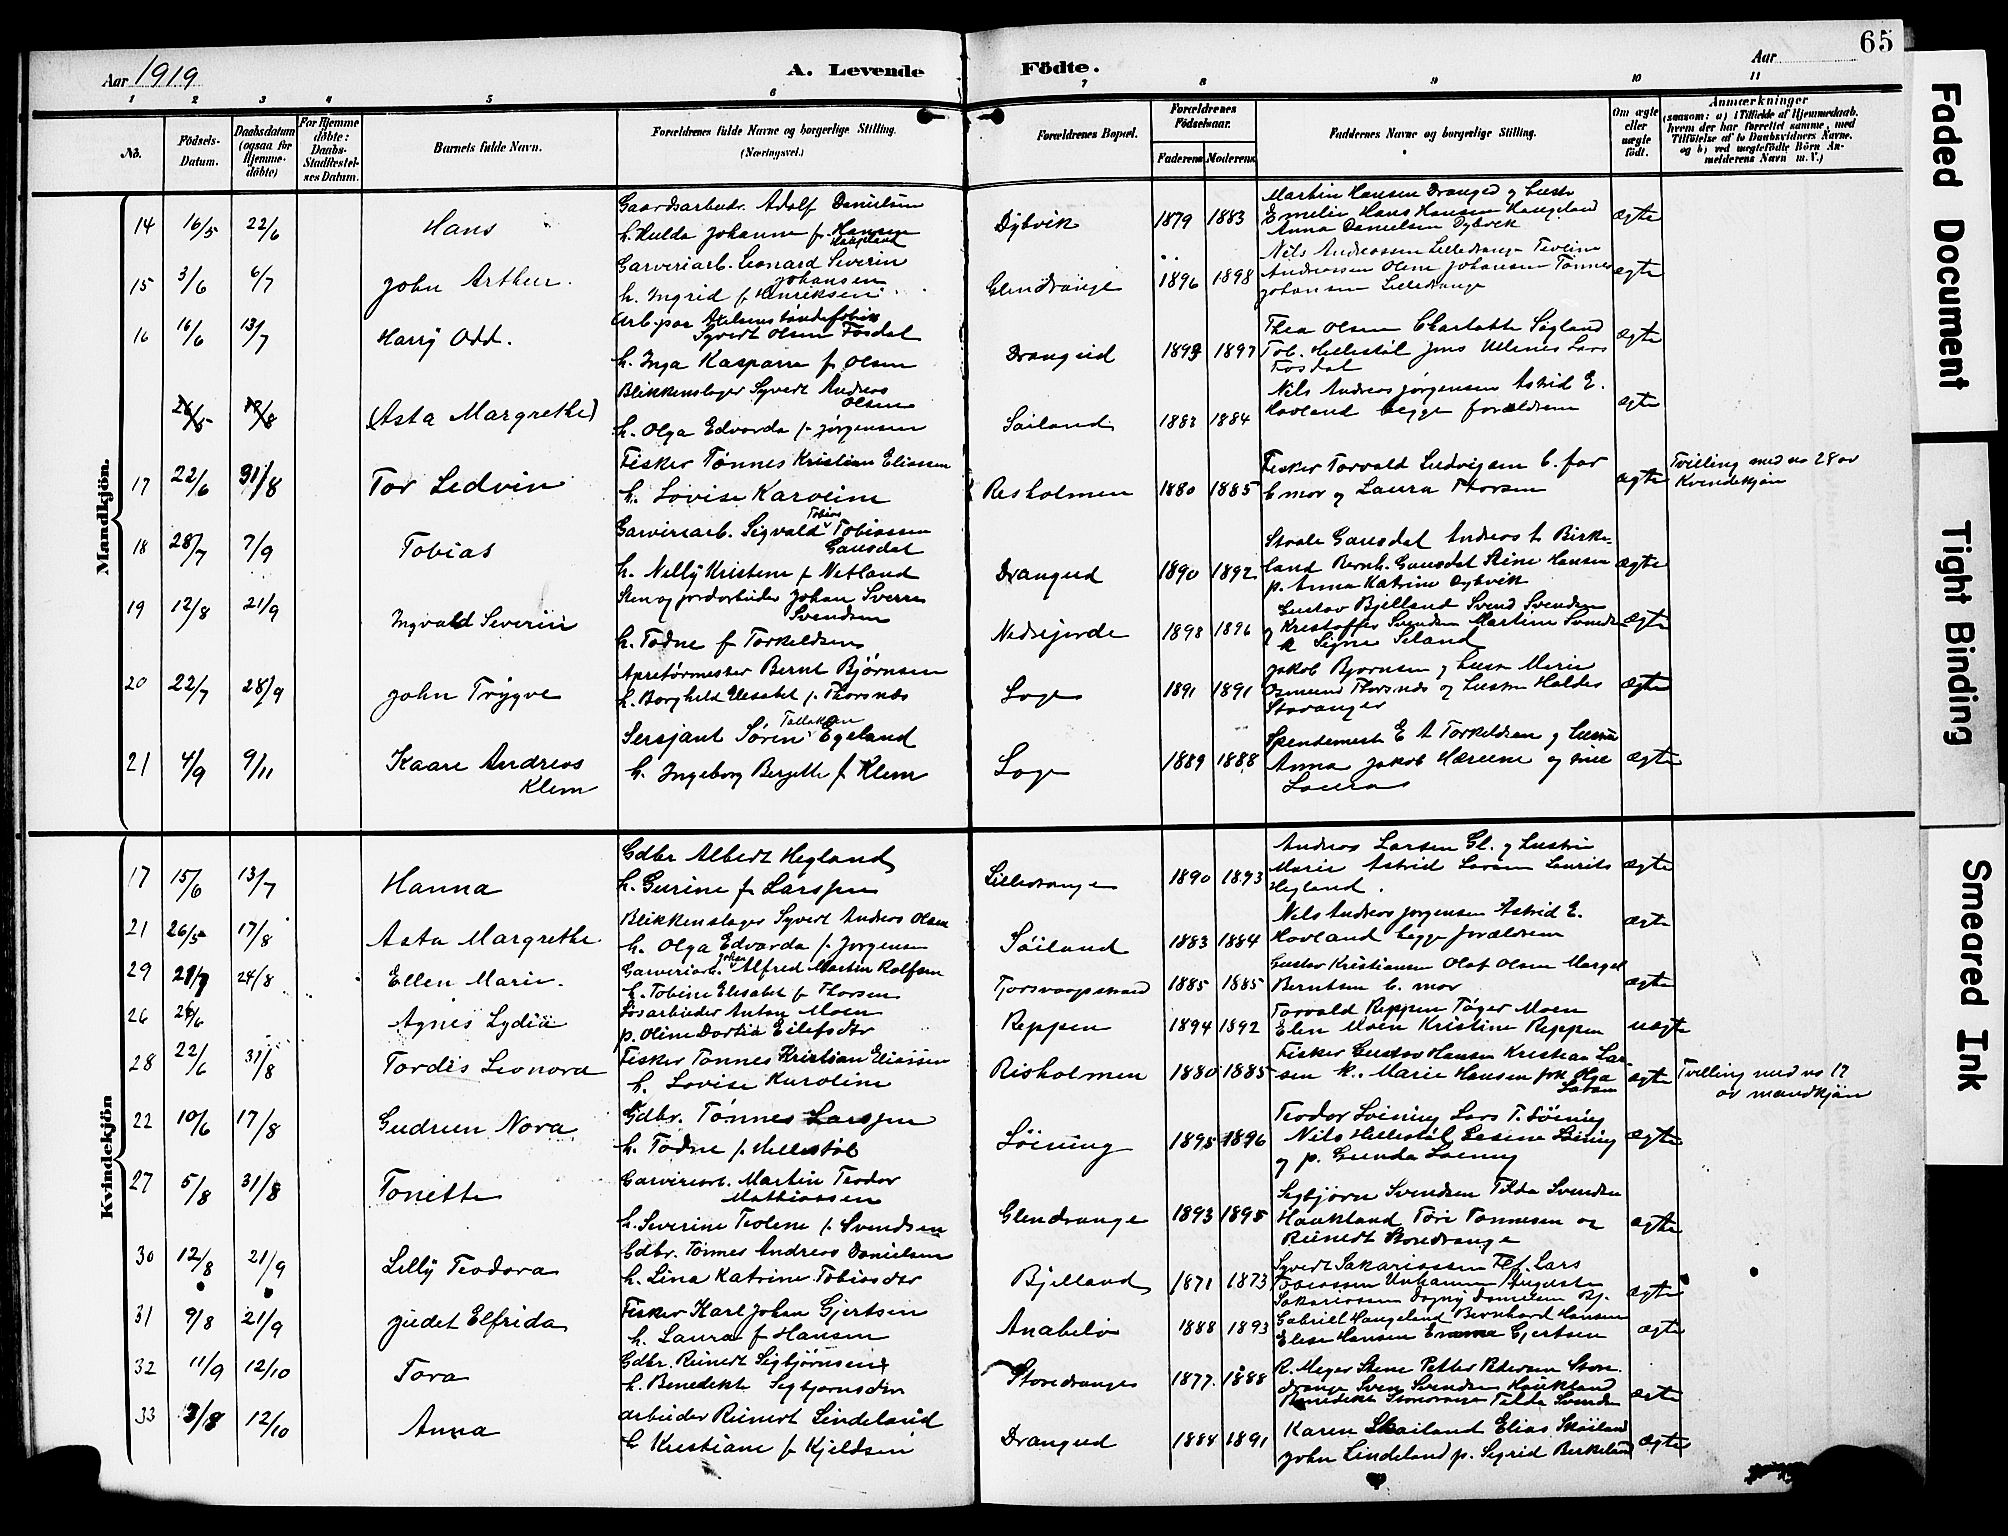 65
Aar 1919
A. Levende Födte.
Aar
1 2 3 4 5 6 7 8 9 10 11
No.
Födsels-Datum.
Daabsdatum (ogsaa for Hjemme-döbte)
For Hjemme döbte: Daabs-Stadfæstel-ses Datum.
Barnets fulde Navn.
Forældrenes fulde Navne og borgerlige Stilling. (Næringsvei.)
Forældrenes Bopæl.
Forældrenes Födselsaar.
Faderens Moderens
Faddernes Navne og borgerlige Stilling.
Om ægte eller uægte födt.
Anmærkninger
(saasom: a) i Tilfælde af Hjemmedaab. hvem der har forrettet samme, med Tilföielse af to Daabsvidners Navne. og b) ved uægtefödte Börn An-melderens Navn m. V.)
Mandkjön.
14 16/5 22/6 Hans
Gaardsarbeidr. Adolf Danielsen
h. Hulda Johanne f. Hansen Haugeland
Dybvik 1879 1883
Martin Hansen Dranged g hustr
Emelie Hans Hansen Haugeland
Anna Danielsen Dybvik
ægte
15 3/6 6/7 John Arthur.
Garveriarb. Leonard Severin Johansen
h. Ingrid f Henriksen
Glendrange 1896 1898
Nils Andreassen Lilledrange Teoline
Andreassen Oline Johansen Tønnes
Johansen Lilledrange
ægte
16 16/6 13/7 Harry Odd.
Syvert Olsen Fosdal
h. Inga Kasparra f Olsen
Drangeid 1897
Thea Olsen Charlotte Sigland
Tob. Hellestøl Jens Ullenes Lars
Fosdal
ægte
26/5 17/8 (Asta Margrethe)
Blikkenslager Syvert Andreas Olsen
h. Olga Edvarda f. Jørgensen
Søiland 1883 1884
Nils Andreas Jørgensen Astrid E.
Hovland begge forældrene
ægte
17 22/6 31/8 Tor Ledvin
Fisker Tønnes Kristian Eliassen
h. Lovise Karoline
Risholmen 1880 1885
Fisker Torvald Ludvigsen b. far
b mor og Laura Thorsen
ægte
Tvilling med no 28 av Kvindekjøn
18 28/7 7/9 Tobias
Garveriarb. Sigvald Tobias Tobiassen Gausdal
h. Nelly Kristene f Netland
Drangeid 1890 1892
Staale Gausdal Andreas t. Birke-
land Bernh. Gausdal Stine Hansen
p. Anna Katrine Dybvik
ægte
19 12/8 21/9 Ingvald Severin
Sten og jordarbeider Johan Sverre Svendsen
h. Todne f Torkeldsen
Nedrejorde 1898 1896
Gustav Bjelland Svend Svendsen
g Kristoffer Svendsen Martine Svends-
k Signe Seland
ægte
20 22/7 28/9 John Trygve
Apretørmester Bernt Bjørnsen
h. Borghild Elisabet f. Thorsnes
Loge 1891 1891
Jakob Bjørnsen g hustr Marie
Osmund Thorsnes og hustru Haldis
Stavanger
ægte
21 4/9 9/11 Kaare Andreas Klem
Sersjant Sørin Tallaksen Egeland
h. Ingeborg Berzette f Klem
Loge 1889 1888
E A Torkeldsen g hustru
Anna Jakob og frue
Laura
ægte
Kvindekjön
17 15/6 13/7 Hanna
Gdbr Albert Hegland
h. Gurine f Larssen
Lilledrange 1890 1893
Andreas Larsen Gl. g hustru
Marie Astrid Larsen Laurits
Hegland.
ægte
21 26/5 17/8 Asta Margrethe
Blikkenslager Syvert Andreas Olsen
h. Olga Edvarda f. Jørgensen
Søiland 1883 1884
Nils Andreas Jørgensen Astrid E.
Hovland begge forældrene
ægte
29 24/8 Ellen Marie.
Garveriarb. Johan Alfred Martin Rolfsen
h. Tobine Elisabet f Thorsen
Tjorsvaagstrand 1885 1885
Gustav Kristiansen Olaf Olsen Margit
Berntsen b. mor
ægte
26 Agnes Lydia
Løsarbeider Anton Moen
p. Oline Dortia Eilefsdtr
Reppen 1894 1892
Torvald Reppen Tøger Moen
Elen Moen Kristine Reppen
uægte
28 22/6 31/8 Tordis Leonora
Fisker Tønnes Kristian Eliassen
h. Lovise Karoline
Risholmen 1880 1885
Fisker Gustav Hansen Kristian Lar-
sen k. Marie Hansen frk Olga Larsen
ægte
Tvilling med no 17 av mandkjøn
22 10/6 17/8 Gudrun Nora
Gdbr. Tønnes Larssen
h. Todne f. Hellestøl
Løining 1895 1896
Teodor Løining Lars T. Løining
Nils Hellestøl Gesine Løining
g p. Gunda Løining
ægte
27 5/8 31/8 Tonette
Garveriarb. Martin Teodor Mathiassen
h. Severine Teoline f. Svendsen
Glendrange 1893 1895
Sigbjørn Svendsen Tilda Svendsen
Haukland Tore Tønnesen og
Reinert Storedrange
ægte
30 12/8 21/9 Lilly Teodora
Gdbr. Tønnes Andreas Danielsen
h. Lina Katrine Tobiasdtr
Bjelland 1871 1873
Syvert Sakariassen Lars
Tobiassen Johanne Auguste
Sakariassen Dagny Danielsen Bj.
ægte
31 9/8 21/9 Judet Elfrida
Fisker Karl Johan Gjertsen
h. Laura f Hansen
Anabeløe 1888 1893
Gabriell Haugeland Bernhard Hansen
Elise Hansen Emma Gjertsen
ægte
32 11/9 12/10 Tora
Gdbr. Reinert Sigbjørnsen
h. Benedikte Sigbjørnsdtr
Storedrange 1877 1888
R. Meyer Stene Petter Pedersen Store-
drange Sven Svendsen Haukland
Benedikte Storedrange Tilda Svendsen
ægte
33 3/8 12/10 Anna
Arbeider Reinert Lindeland
h Kristiane f Kjeldsen
Drangeid 1884 1891
Karen Skailand Elias Skailand
John Lindeland p. Sigrid Birkeland
ægte
Faded Document
Tight Binding
Smeared Ink